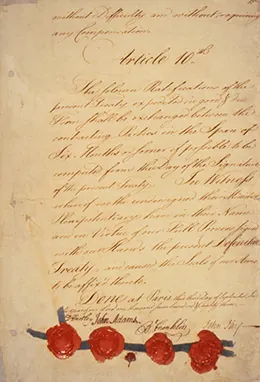 without Difficulty and without requiring
any Compensation.
Article 10th:
The solemn Ratifications of the
present Treaty expedited in good & due
Form shall be exchanged between the
contracting Parties in the Space of
Six Months or sooner if possible to be
computed from the Day of the Signature
of the present Treaty. In Witness
whereof we the undersigned their Ministers
Plenipotentiary have in their Name
and in Virtue of our Full Powers signed
with our Hands the present Definitive
Treaty, and caused the Seals of our Arms
to be affix'd thereto.
Done at Paris, this third Day of September,
D Hartley John Adams B Franklin John Jay